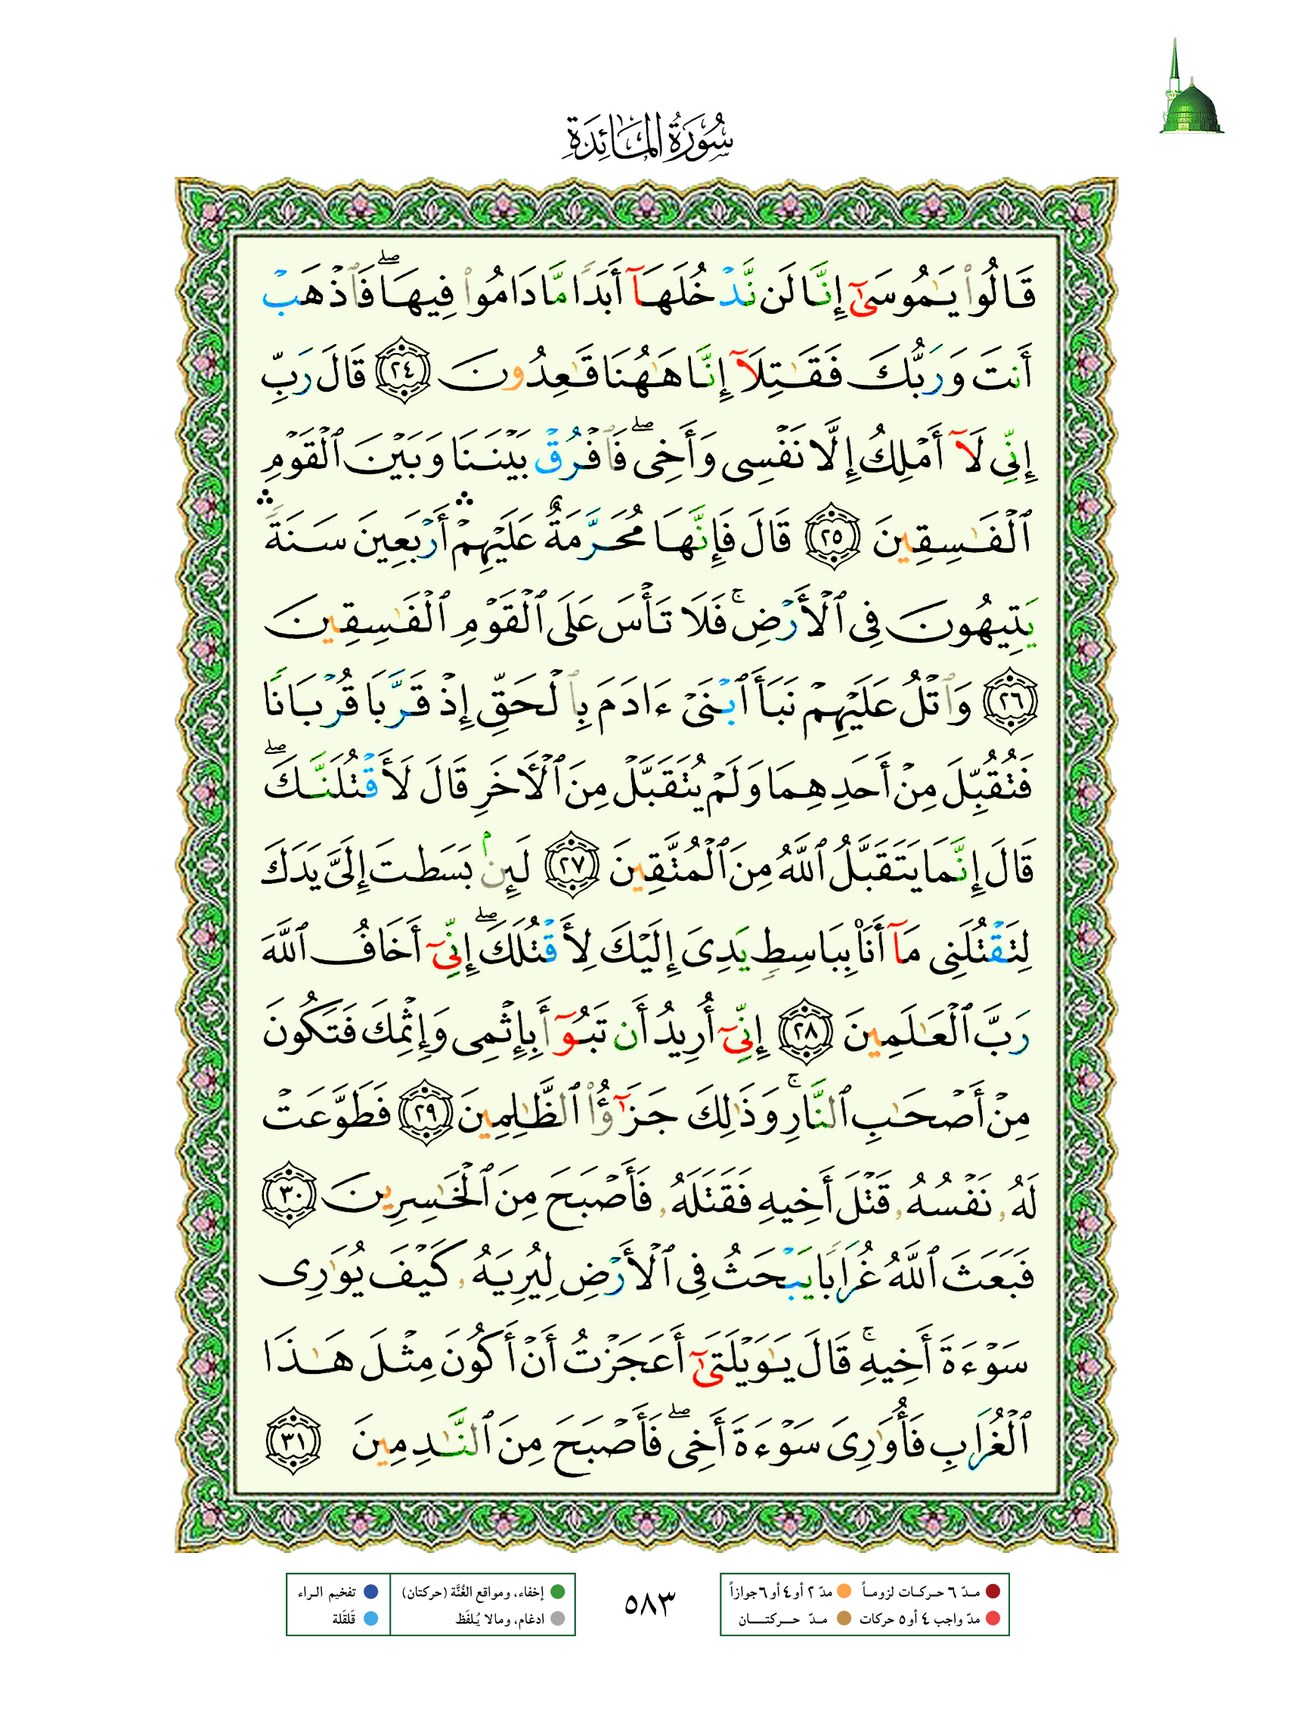 سُورَةُ المَائِدَةِ
قَالُوا۟ يَـٰمُوسَىٰٓ إِنَّا لَن نَّدْخُلَهَآ أَبَدًا مَّا دَامُوا۟ فِيهَا ۖ فَٱذْهَبْ
أَنتَ وَرَبُّكَ فَقَـٰتِلَآ إِنَّا هَـٰهُنَا قَـٰعِدُونَ ٢٤ قَالَ رَبِّ
إِنِّى لَآ أَمْلِكُ إِلَّا نَفْسِى وَأَخِى ۖ فَٱفْرُقْ بَيْنَنَا وَبَيْنَ ٱلْقَوْمِ
ٱلْفَـٰسِقِينَ ٢٥ قَالَ فَإِنَّهَا مُحَرَّمَةٌ عَلَيْهِمْ ۛ أَرْبَعِينَ سَنَةً ۛ
يَتِيهُونَ فِى ٱلْأَرْضِ ۚ فَلَا تَأْسَ عَلَى ٱلْقَوْمِ ٱلْفَـٰسِقِينَ
٢٦ وَٱتْلُ عَلَيْهِمْ نَبَأَ ٱبْنَىْ ءَادَمَ بِٱلْحَقِّ إِذْ قَرَّبَا قُرْبَانًا
فَتُقُبِّلَ مِنْ أَحَدِهِمَا وَلَمْ يُتَقَبَّلْ مِنَ ٱلْـَٔاخَرِ قَالَ لَأَقْتُلَنَّكَ ۖ
قَالَ إِنَّمَا يَتَقَبَّلُ ٱللَّهُ مِنَ ٱلْمُتَّقِينَ ٢٧ لَئِنۢ بَسَطتَ إِلَىَّ يَدَكَ
لِتَقْتُلَنِى مَآ أَنَا۠ بِبَاسِطٍ يَدِىَ إِلَيْكَ لِأَقْتُلَكَ ۖ إِنِّىٓ أَخَافُ ٱللَّهَ
رَبَّ ٱلْعَـٰلَمِينَ ٢٨ إِنِّىٓ أُرِيدُ أَن تَبُوٓأَ بِإِثْمِى وَإِثْمِكَ فَتَكُونَ
مِنْ أَصْحَـٰبِ ٱلنَّارِ ۚ وَذَٰلِكَ جَزَٰٓؤُا۟ ٱلظَّـٰلِمِينَ ٢٩ فَطَوَّعَتْ
لَهُۥ نَفْسُهُۥ قَتْلَ أَخِيهِ فَقَتَلَهُۥ فَأَصْبَحَ مِنَ ٱلْخَـٰسِرِينَ ٣٠
فَبَعَثَ ٱللَّهُ غُرَابًا يَبْحَثُ فِى ٱلْأَرْضِ لِيُرِيَهُۥ كَيْفَ يُوَٰرِى
سَوْءَةَ أَخِيهِ ۚ قَالَ يَـٰوَيْلَتَىٰٓ أَعَجَزْتُ أَنْ أَكُونَ مِثْلَ هَـٰذَا
ٱلْغُرَابِ فَأُوَٰرِىَ سَوْءَةَ أَخِى ۖ فَأَصْبَحَ مِنَ ٱلنَّـٰدِمِينَ ٣١
مـدّ ٦ حـركـات لزومـاً مدّ ٢ أو ٤ أو ٦ جوازاً
مدّ واجب ٤ أو ٥ حركات مـدّ حـــركتــــان
٥٨٣
إخفاء، ومواقع الغُنَّة (حركتان) تفخيم الراء
ادغام، ومالا يُـلفَظ قَلقَلة